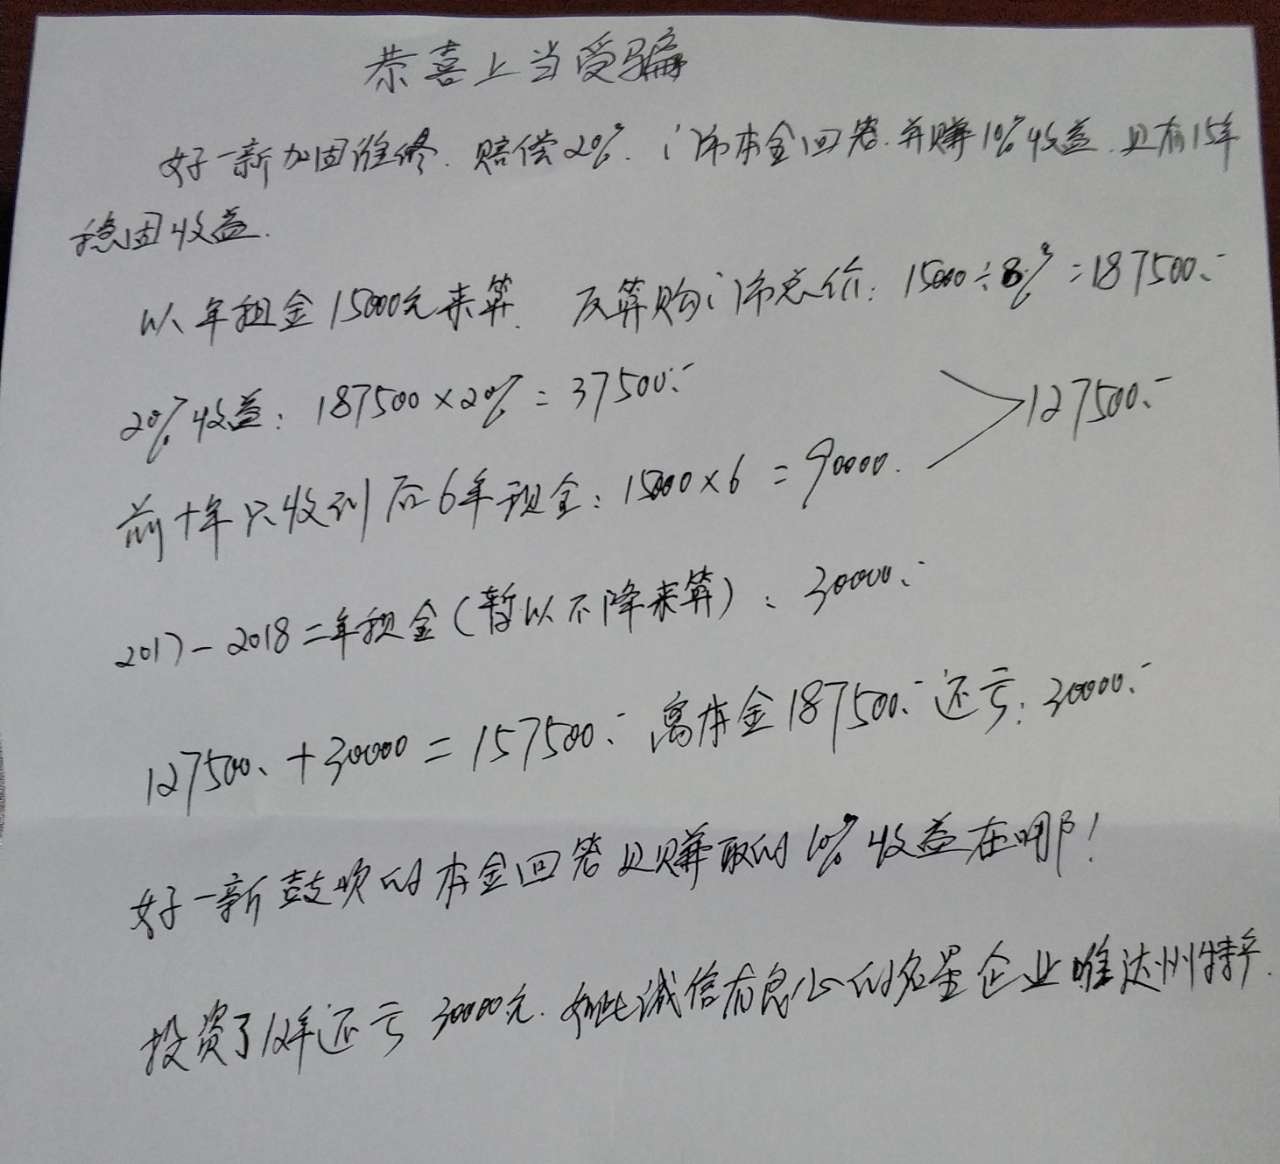 恭喜上当受骗
好一新加固维修.赔偿20%.门市本金回笼.并赚10%收益.且有15年
稳固收益.
以年租金15000元来算. 反算购门市总价:15000÷8%=187500.-
20%收益:187500×20%=37500.-
127500.-
前十年只收到后6年现金:15000×6=90000.
2017-2018二年租金(暂以不降来算):30000.-
127500.+30000=157500.- 离本金187500.-还亏:30000.-
好一新鼓吹的本金回笼且赚取的10%收益在哪!
投资了12年还亏30000元.如此诚信有良心的名星企业唯达州特产.